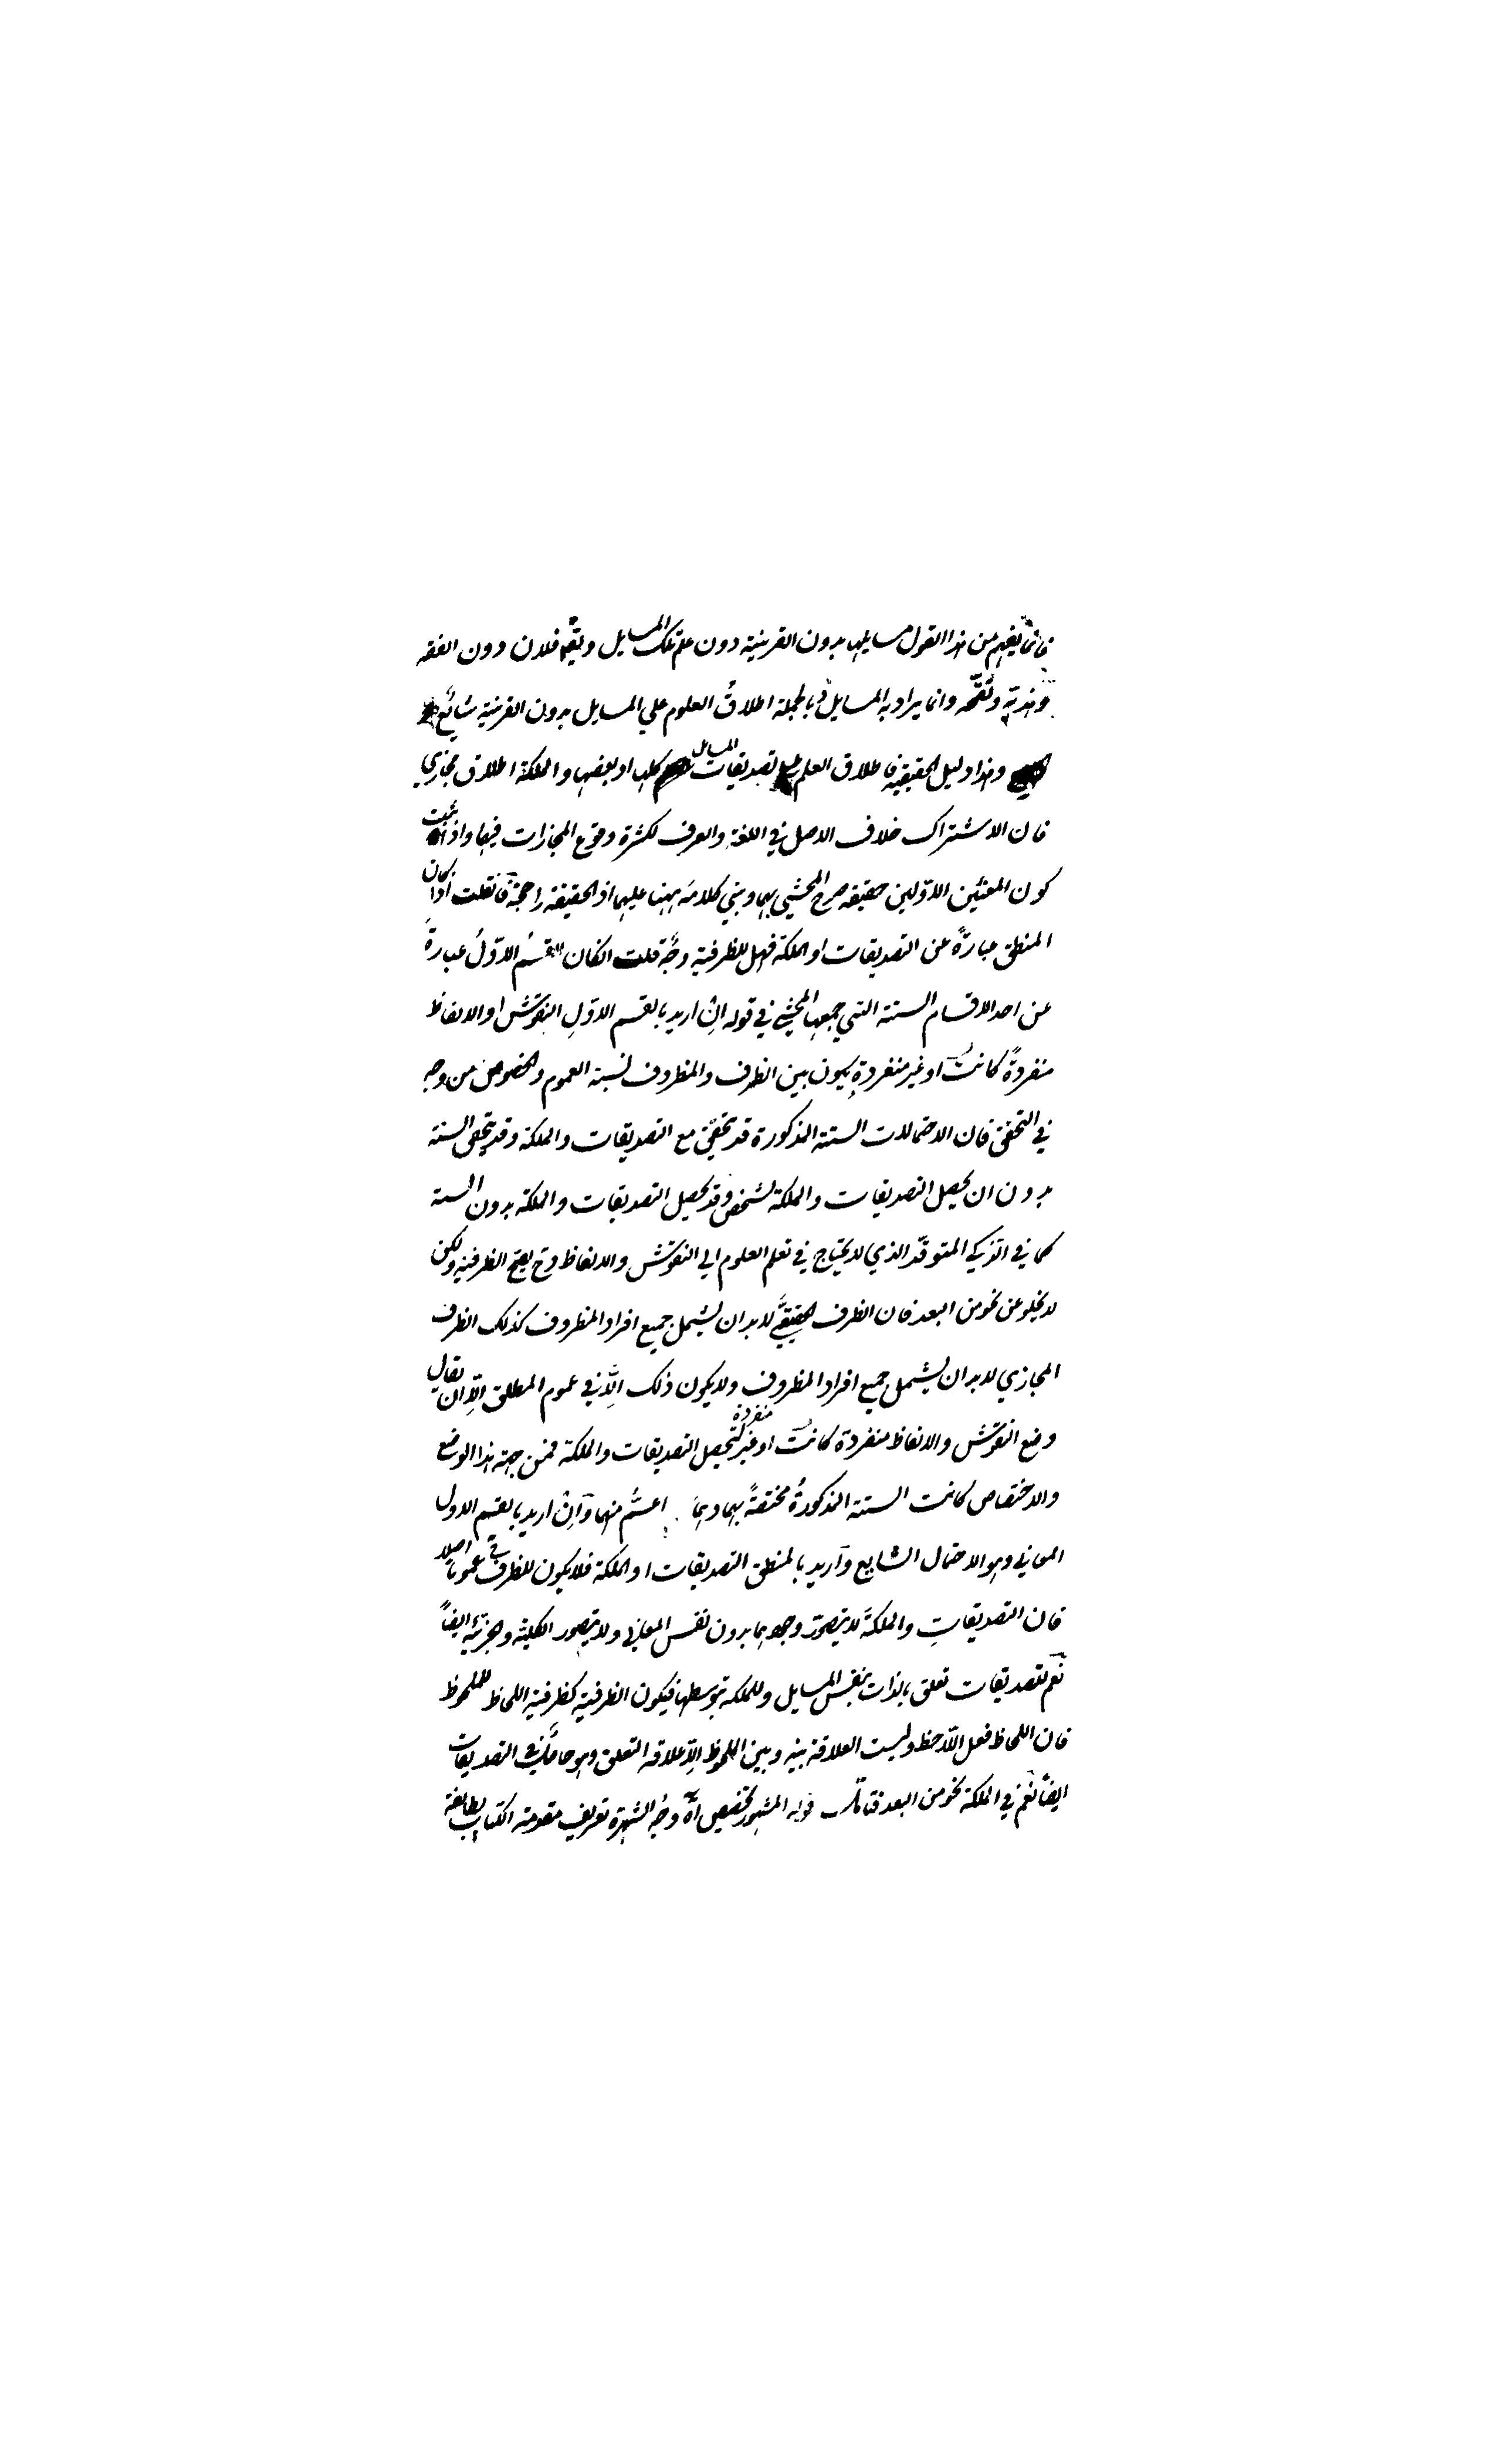 فانما يفهم من هذا القول مسايلها بدون القرينة دون علم تلك المسايل ويقٰ فلان دون الفقه
وهذبه ونقحه وانما يراد به المسايل وبالجملة اطلاقُ العلوم علي المسايل بدون القرينة شائع
وهذا دليل الحقيقة فاطلاق العلم علي تصديقات المسايل كلها او بعضها والملكة اطلاق مجازي
فان الاشتراك خلاف الاصل في اللغة والعرف لكثرة وقوع المجازات فيها واذا ثبت
كون المعنيين الاوّلين حقيقة صرح المحشي بهما وبني كلامه ههنا عليهما اذ الحقيقة راجحة فانقلت اذا كان
المنطق عبارةً عن التصديقات او الملكة فهل للظرفية وجهٌ قلت انكان القسمُ الاوّلُ عبارةً
عن احد الاقسام الستة التي جمعها المحشي في قوله انْ اريد بالقسم الاوّلِ النقوش او الالفاظ
منفردةً كانتْ او غير منفردةٍ يكون بين الظرف والمظروف نسبة العموم والخصوص من وجه
في التحقق فان الاحتمالات الستة المذكورة قد تحقق مع التصديقات والملكة وقد تحقق الستة
بدون ان يحصل التصديقات والملكة لشخص وقد يحصل التصديقات والملكة بدون الستة
كما في الذكي المتوقد الذي لا يحتاج في تعلم العلوم الي النقوش والالفاظ وح يصح الظرفية ولكن
لا يخلو عن نحو من البعد فان الظرف الحقيقي لا بد ان يشمل جميع افراد المظروف كذلك الظرف
المجازي لا بد ان يشمل جميع افراد المظروف ولا يكون ذلك الّا في عموم المطلق الّا ان يقال
وضع النقوش والالفاظ منفردة كانتْ او غير منفردة لتحصيل التصديقات والملكة فمن جهة هذا الوضع
والاختصاص كانت الستة المذكورةُ مختصةً بهما وهما اعمُّ منهما وانْ اريد بالقسم الاول
المعاني وهو الاحتمال السابع واريد بالمنطق التصديقات او الملكة فلا يكون للظرفية عموما اصلا
فان التصديقاتِ والملكةَ لا يتصور وجودهما بدون نفس المعاني ولا يتصور الكلية والجزئية ايضاً
نعم للتصديقات تعلق بالذات بنفس المسايل وللملكة بتوسطها فيكون الظرفية كظرفية اللحاظ للملحوظ
فان اللحاظ فعل اللّاحظ وليست العلاقة بينه وبين الملحوظ الّا علاقة التعلق وهو حاصل في التصديقات
ايضاً نعم في الملكة نحو من البعد فتأمل قوله المشهور تخصيص اه وجه الشهرة تعريف مقدمة الكتاب بطائفة